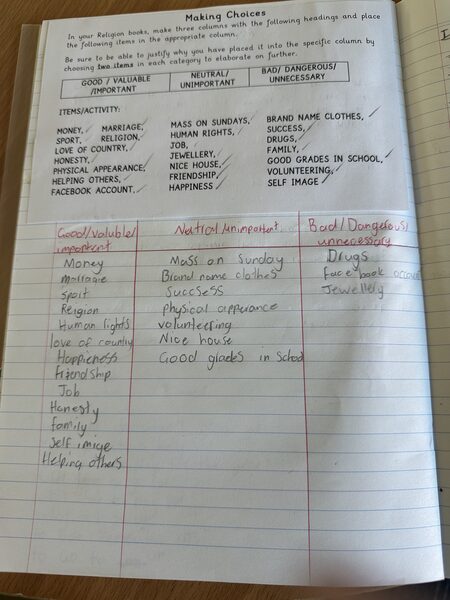 Making Choices
In your Religion books, make three columns with the following headings and place
the following items in the appropriate column.
Be sure to be able to justify why you have placed it into the specific column by
choosing two items in each category to elaborate on further.
GOOD / VALUABLE /IMPORTANT
NEUTRAL/ UNIMPORTANT
BAD/ DANGEROUS/ UNNECESSARY
ITEMS/ACTIVITY:
MONEY, MARRIAGE,
SPORT, RELIGION,
LOVE OF COUNTRY,
HONESTY,
PHYSICAL APPEARANCE,
HELPING OTHERS,
FACEBOOK ACCOUNT,
MASS ON SUNDAYS,
HUMAN RIGHTS,
JOB,
JEWELLERY,
NICE HOUSE,
FRIENDSHIP,
HAPPINESS
BRAND NAME CLOTHES,
SUCCESS,
DRUGS,
FAMILY,
GOOD GRADES IN SCHOOL,
VOLUNTEERING,
SELF IMAGE
Good/valuble/
important
Money
marraaie
Sport
Religion
Human rights
love of country
Happieness
friendship
Job
Honesty
family
self imige
Helping others
Neutral/unimportent
Mass on Sunday
Brand name clothes
Success
physical apperance
volunteering
Nice house
Good grades in school
Bad/Dangerous/
unnecessary
Drugs
Face book
Jewellery